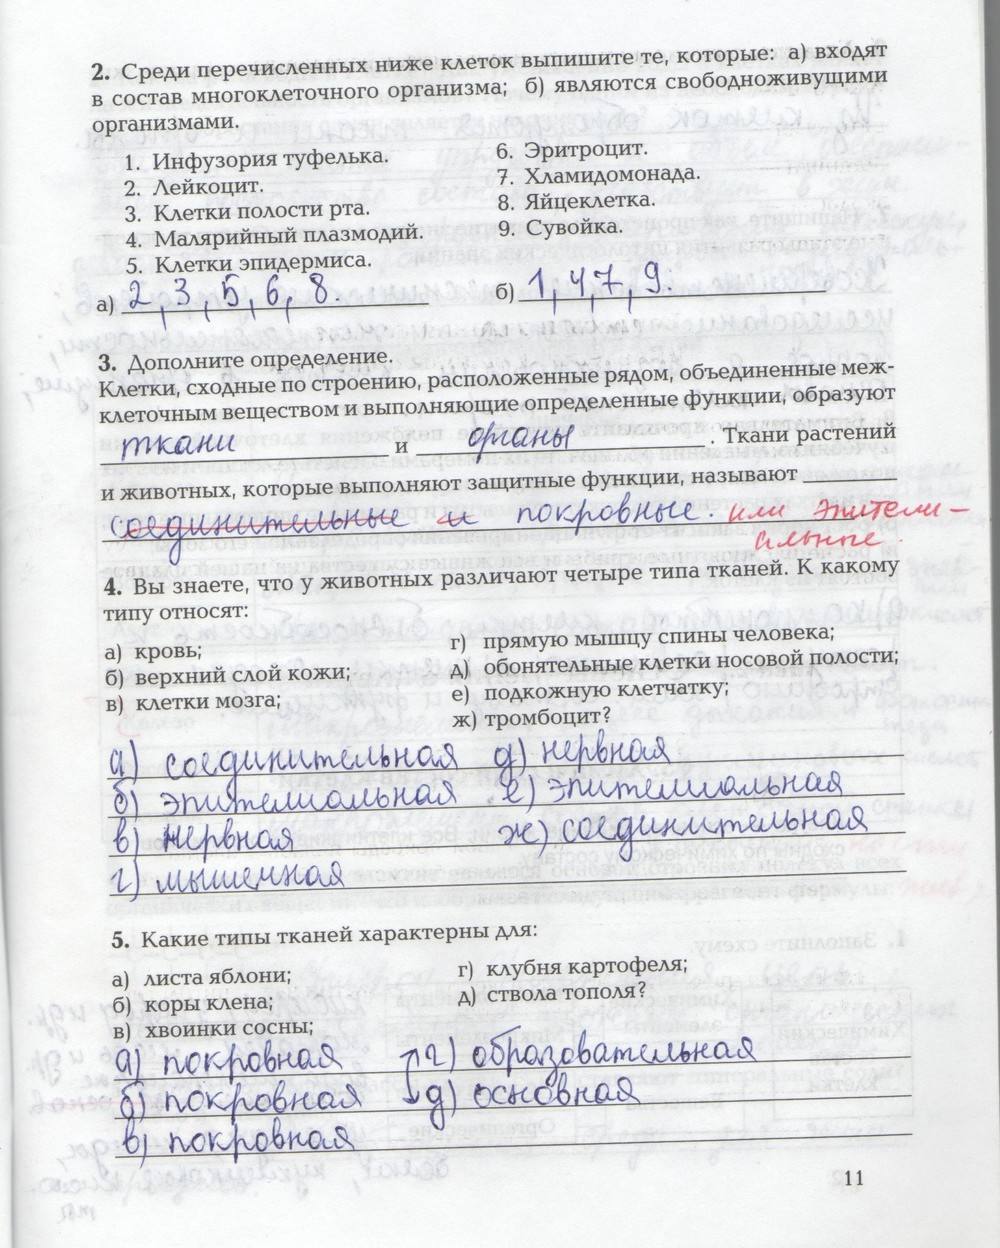 2. Среди перечисленных ниже клеток выпишите те, которые: а) входят
в состав многоклеточного организма; б) являются свободноживущими
организмами.
1. Инфузория туфелька.
2. Лейкоцит.
3. Клетки полости рта.
4. Малярийный плазмодий.
5. Клетки эпидермиса.
6. Эритроцит.
7. Хламидомонада.
8. Яйцеклетка.
9. Сувойка.
а) 2, 3, 5, 6, 8. б) 1, 4, 7, 9.
3. Дополните определение.
Клетки, сходные по строению, расположенные рядом, объединенные меж-
клеточным веществом и выполняющие определенные функции, образуют
ткани и органы . Ткани растений
и животных, которые выполняют защитные функции, называют
соединительные и покровные. или эпители-
альные
4. Вы знаете, что у животных различают четыре типа тканей. К какому
типу относят:
а) кровь;
б) верхний слой кожи;
в) клетки мозга;
г) прямую мышцу спины человека;
д) обонятельные клетки носовой полости;
е) подкожную клетчатку;
ж) тромбоцит?
а) соединительная д) нервная
б) эпителиальная е) эпителиальная
в) нервная ж) соединительная
г) мышечная
5. Какие типы тканей характерны для:
а) листа яблони;
б) коры клена;
в) хвоинки сосны;
г) клубня картофеля;
д) ствола тополя?
а) покровная г) образовательная
б) покровная д) основная
в) покровная
11